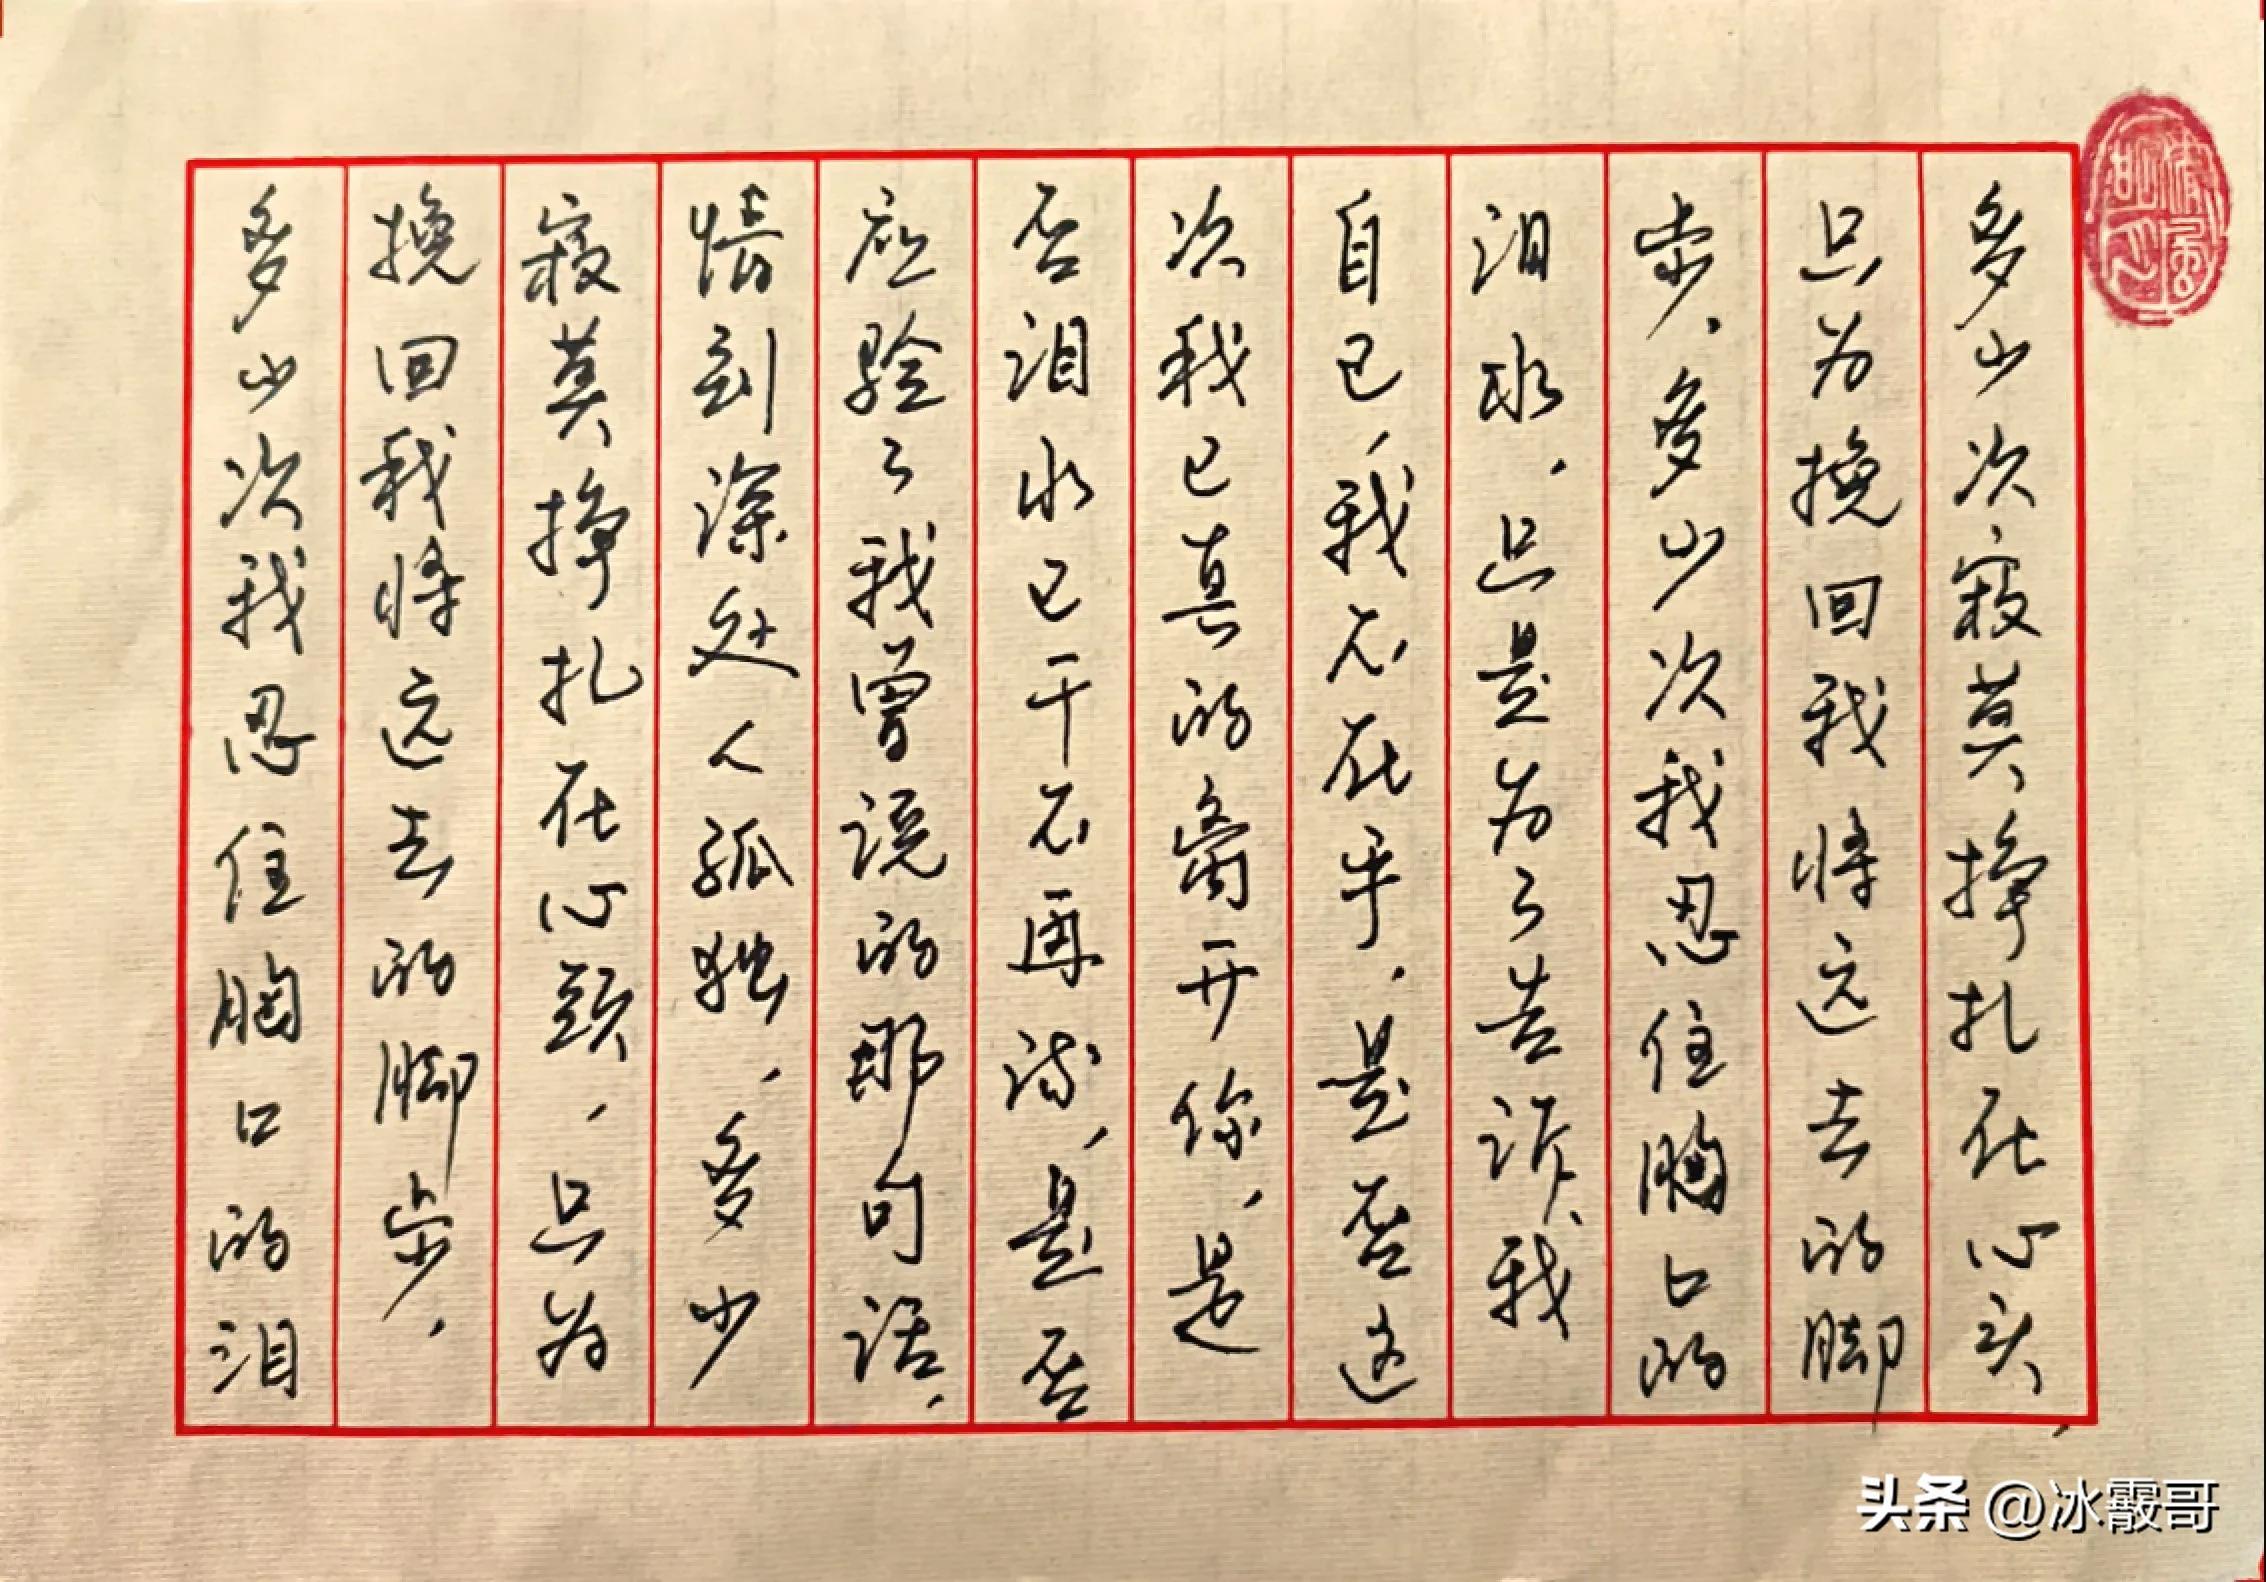 清風明月
多少次寂莫挣扎在心头,
只为挽回我将远去的脚
步,多少次我忍住胸口的
泪水,只是为了告诉我
自己,我不在乎,是否这
次我已真的离开你,是
否泪水已干不再流,是否
应验了我曾说的那句话,
情到深处人孤独,多少
寂莫挣扎在心頭,只为
挽回我将远去的脚步,
多少次我忍住胸口的泪
头条 @冰霰哥